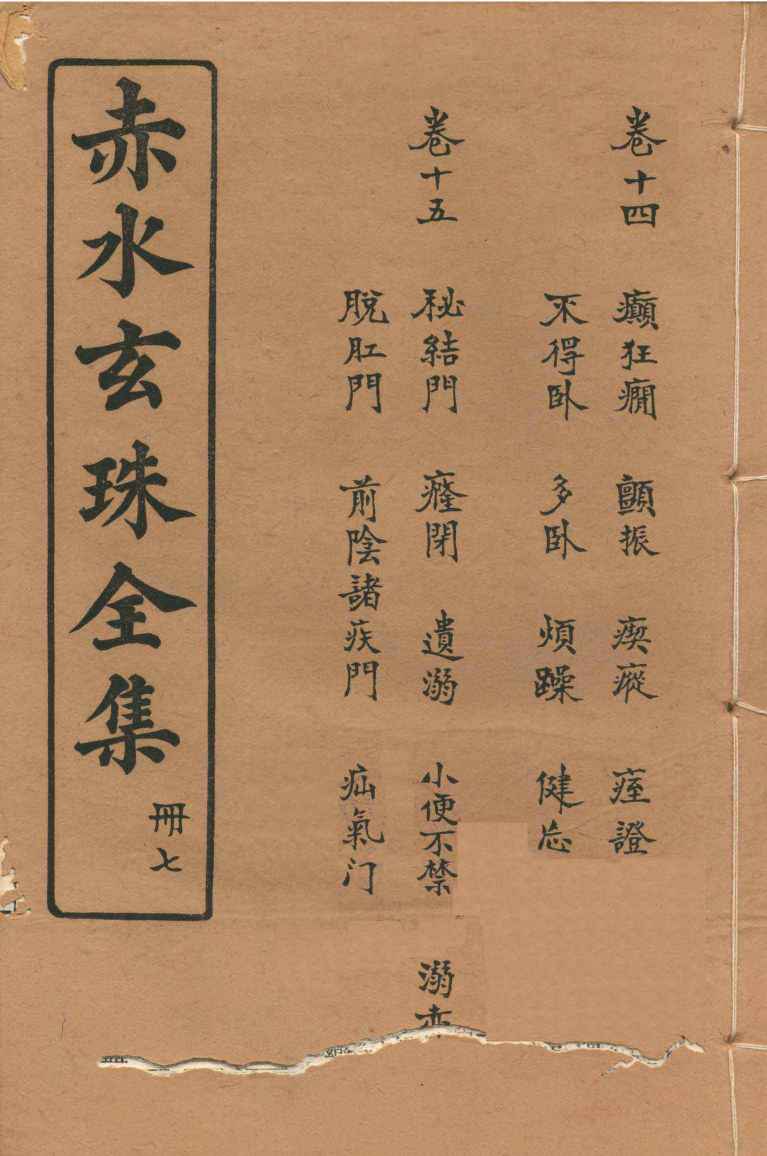 卷十四 癲狂癇 顫振 瘈瘲 痓證
不得卧 多卧 煩躁 健忘
卷十五 秘結門 癃閉 遺溺 小便不禁 溺赤
脫肛門 前陰諸疾門 疝氣门
赤水玄珠全集
冊七